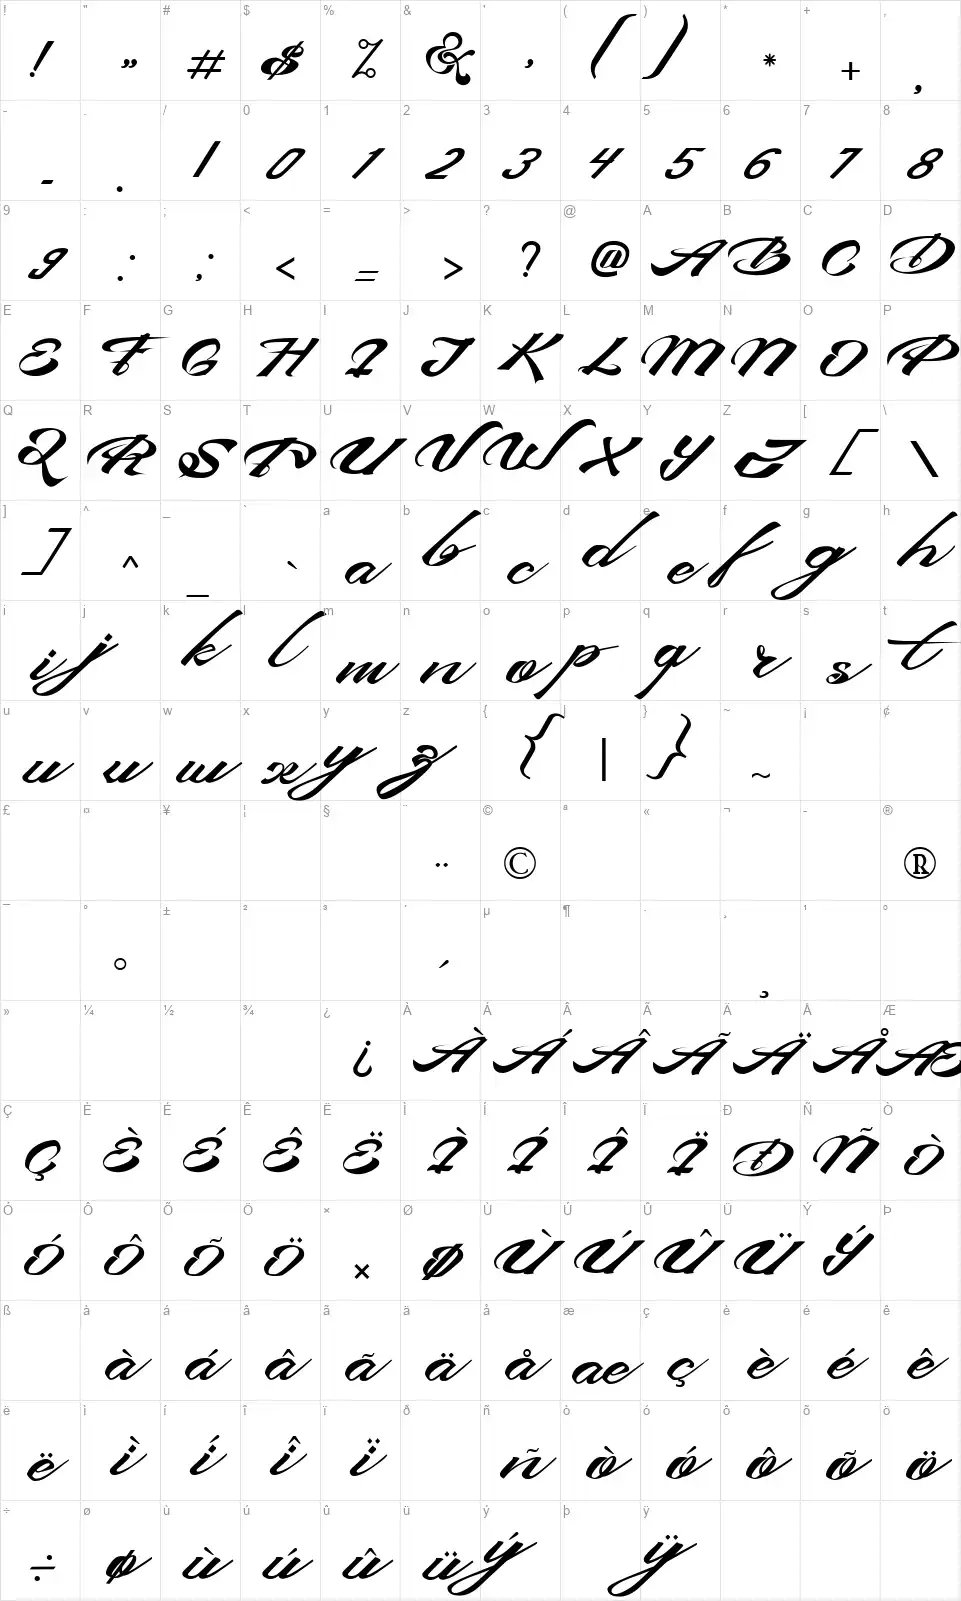 ! " # $ % & ' ( ) * + ,
! " # $ % & ' ( ) * + ,
- . / 0 1 2 3 4 5 6 7 8
- . / 0 1 2 3 4 5 6 7 8
9 : ; < = > ? @ A B C D
9 : ; < = > ? @ A B C D
E F G H I J K L M N O P
E F G H I J K L M N O P
Q R S T U V W X Y Z [ \
Q R S T U V W X Y Z [ \
] ^ _ ` a b c d e f g h
] ^ _ ` a b c d e f g h
i j k l m n o p q r s t
i j k l m n o p q r s t
u v w x y z { | } ~ ¡ ¢
u v w x y z { | } ~
£ ¤ ¥ ¦ § ¨ © ª « ¬ - ®
¨ © ®
¯ ° ± ² ³ ´ µ ¶ · ¸ ¹ º
° ´ ¸
» ¼ ½ ¾ ¿ À Á Â Ã Ä Å Æ
¿ À Á Â Ã Ä Å Æ
Ç È É Ê Ë Ì Í Î Ï Ð Ñ Ò
Ç È É Ê Ë Ì Í Î Ï Ð Ñ Ò
Ó Ô Õ Ö × Ø Ù Ú Û Ü Ý Þ
Ó Ô Õ Ö × Ø Ù Ú Û Ü Ý
ß à á â ã ä å æ ç è é ê
à á â ã ä å æ ç è é ê
ë ì í î ï ð ñ ò ó ô õ ö
ë ì í î ï ñ ò ó ô õ ö
÷ ø ù ú û ü ý þ ÿ
÷ ø ù ú û ü ý ÿ